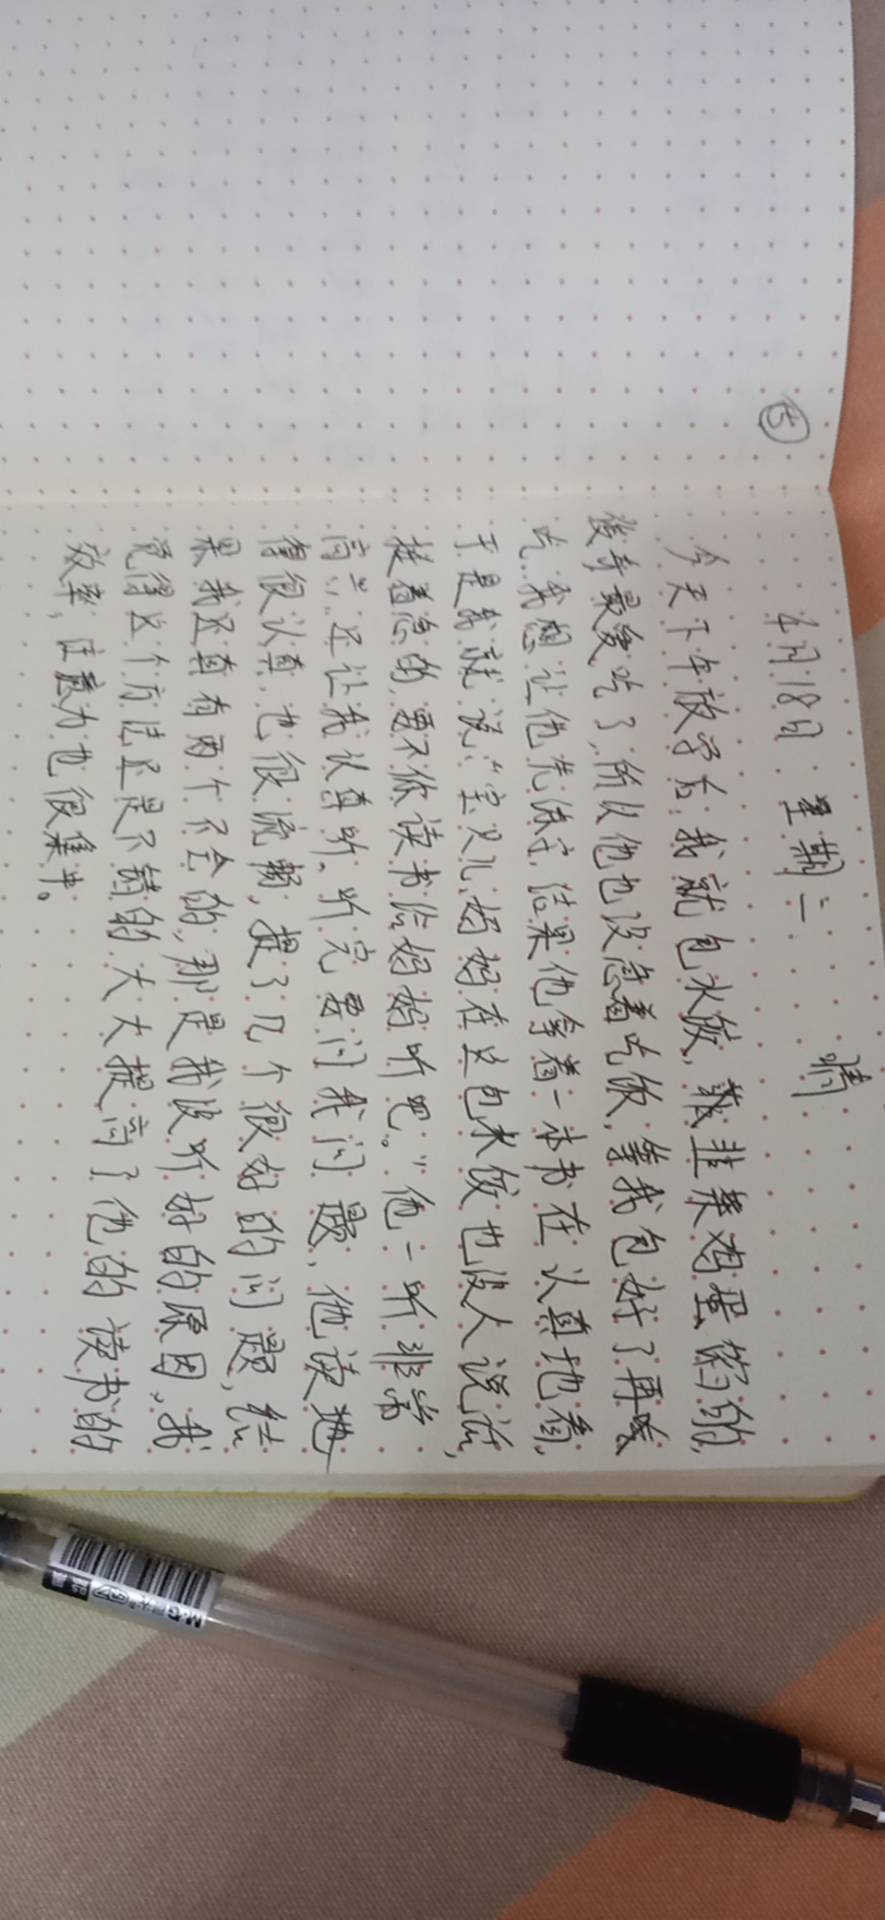 15
4月18日 星期二 晴
今天下午放学后,我就包水饺,我韭菜鸡蛋馅的,
俊奇最爱吃了,所以他也没急着吃饭,等我包好了再
吃,我想让他先休字,结果他拿着一本书在认真地看,
于是我就说:“宝贝儿,妈妈在这包水饺也没人说话,
挺着急的,要不你读书给妈妈听吧。”他一听非常
高兴,还让我认真听,听完要问我问题,他读地
得很认真,也很流畅,提了几个很好的问题,结
果我还真有两个不会的,那是我没听好的原因,我
觉得这个方法还是不错的,大大提高了他的读书的
效率,注意力也很集中。
M&G